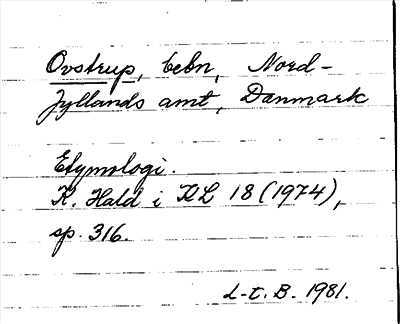 Ovstrup, bebn, Nord-
Jyllands amt, Danmark
Etymologi.
K. Hald i KL 18 (1974),
sp. 316.
L-t. B. 1981.